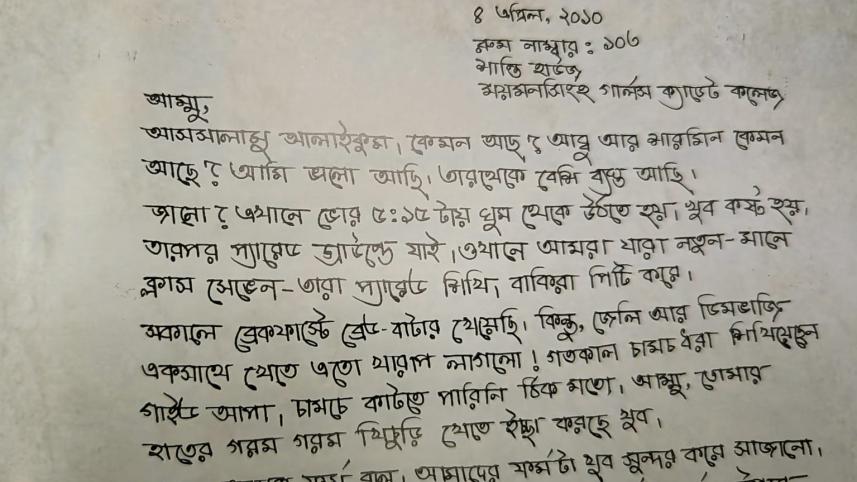 ৪ এপ্রিল, ২০১০
রুম নাম্বার : ১০৬
শান্তি হাউজ
ময়মনসিংহ গার্লস ক্যাডেট কলেজ
আম্মু,
আসসালামু আলাইকুম। কেমন আছ? আব্বু আর শারমিন কেমন
আছে? আমি ভালো আছি। তারথেকে বেশি ব্যস্ত আছি।
জানো? এখানে ভোর ৫:১৫ টায় ঘুম থেকে উঠতে হয়। খুব কষ্ট হয়।
তারপর প্যারেড গ্রাউন্ডে যাই। ওখানে আমরা যারা নতুন- মানে
ক্লাস সেভেন- তারা প্যারেড শিখি, বাকিরা পিটি করে।
সকালে ব্রেকফাস্টে ব্রেড-বাটার খেয়েছি। কিন্তু, জেলি আর ডিমভাজি
একসাথে খেতে এতো খারাপ লাগলো! গতকাল চামচ ধরা শিখিয়েছেন
গাইড আপা। চামচে কাটতে পারিনি ঠিক মতো। আম্মু, তোমার
হাতের গরম গরম খিচুড়ি খেতে ইচ্ছা করছে খুব।
আমাদের ফর্মটা খুব সুন্দর করে সাজানো।